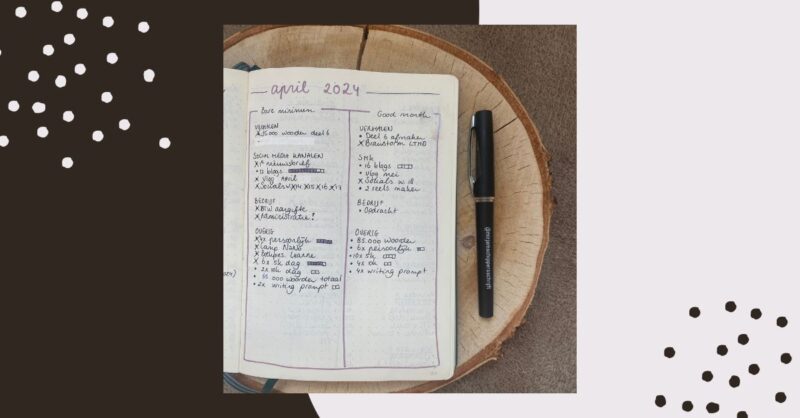 april 2024
Bare minimum
VERHALEN
X 35.000 woorden deel 6
SOCIAL MEDIA KANALEN
X 1e nieuwsbrief
• 12 blogs
X Vlog April
X Socials X 14 X 15 X 16 X 17
BEDRIJF
X BTW aangifte
X Administratie!
OVERIG
X 4x persoonlijk
X Camp Nano
X Leanne
X 6x 5k dag
• 2x 10k dag
• 65.000 woorden totaal
• 2x writing prompt
Good month
VERHALEN
• Deel 6 afmaken
X Brainstorm LTMD
SMK
• 16 blogs
• Vlog mei
X Socials w 18
• 2 reels maken
BEDRIJF
• Opdracht
OVERIG
• 85.000 woorden
• 6x persoonlijk
• 10x 5k
• 4x 10k
• 4x writing prompt